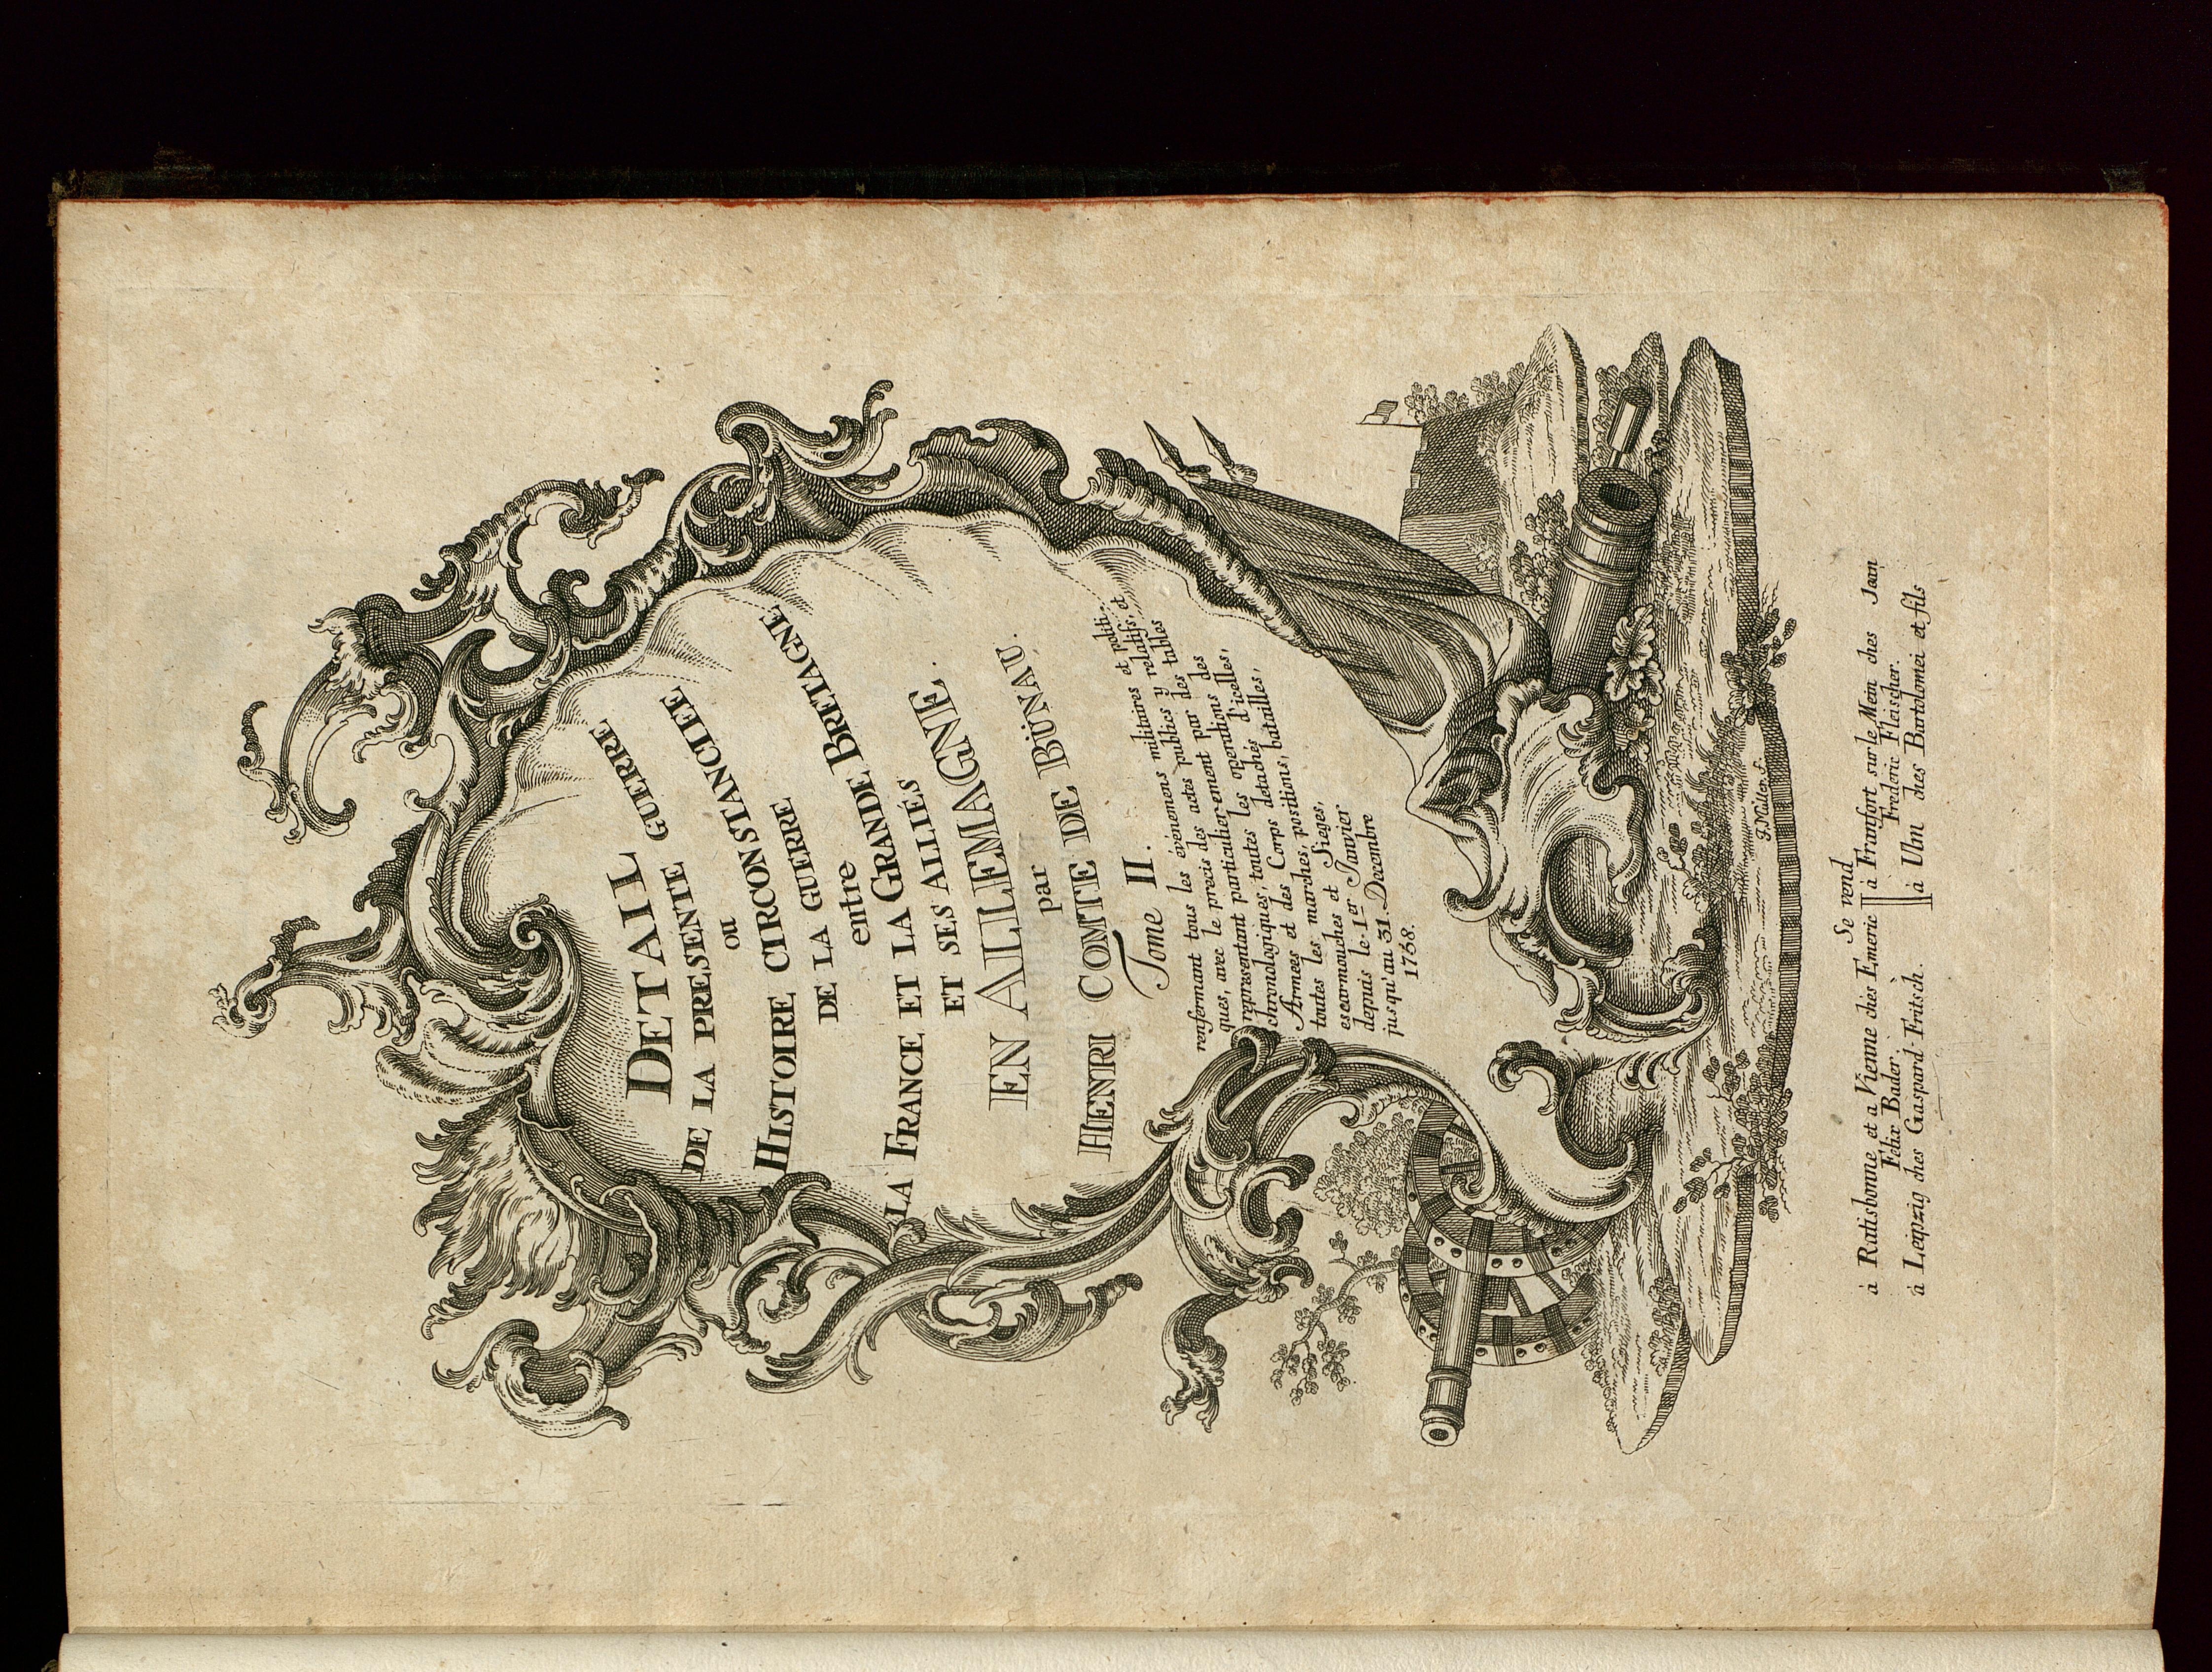 DETAIL
DE LA PRESENTE GUERRE
ou
HISTOIRE CIRCONSTANCIEE
DE LA GUERRE
entre
LA FRANCE ET LA GRANDE BRETAGNE
ET SES ALLIÉS
EN ALLEMAGNE.
par
HENRI COMTE DE BÜNAU.
Tome II.
renfermant tous les événemens militaires et politi,,
ques, avec le precis des actes publics y relatifs, et
representant particulierement par des tables
chronologiques, toutes les operations des
Armées et des Corps detachés d'icelles,
toutes les marches, positions, batailles,
escarmouches et Sieges,
depuis le 1er Janvier
jusqu'au 31. Decembre
1758.
J. Nailler S.
Se vend
à Ratisbonne et a Vienne chès Emeric
Felix Bader.
à Leipzig ches Gaspard Fritsch.
à Franfort sur le Mein ches Jean
Frederic Fleischer.
à Ulm ches Bartolomei et fils